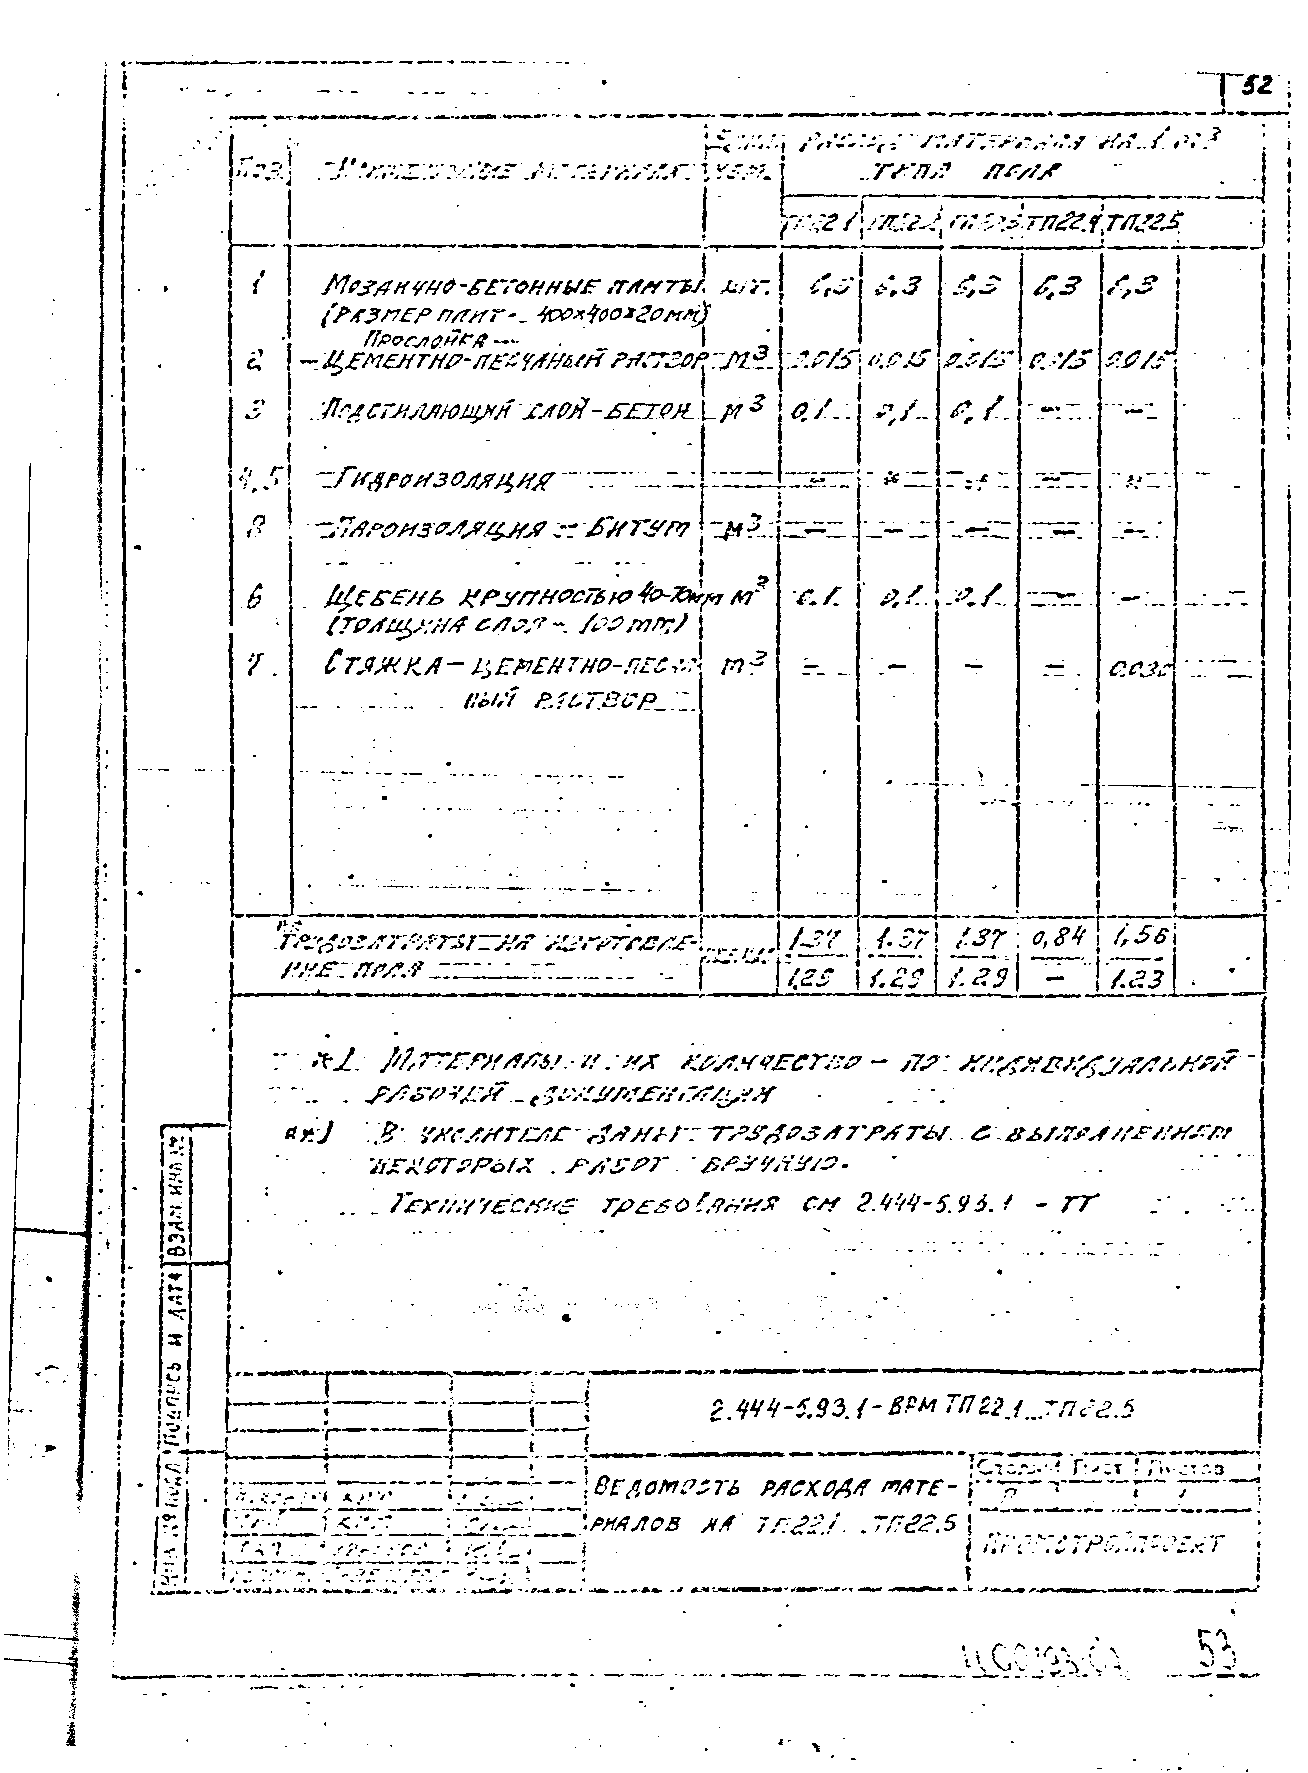 52
Поз. Наименование материала Един. изм. Расход материала на 1 м3
типа пола
ТП22.1 ТП22.2 ТП22.3 ТП22.4 ТП22.5
1 Мозаично-бетонные плиты шт. 6,3 6,3 6,3 6,3 6,3
(размер плит - 400×400×20мм)
Прослойка —
2 – цементно-песчаный раствор м3 0.015 0.015 0.015 0.015 0.015
3 Подстилающий слой – бетон м3 0,1 0,1 0,1 — —
4,5 Гидроизоляция
8 Пароизоляция – битум м3 — — — — —
6 Щебень крупностью 40-70мм м3 0.1 0,1 0.1 — —
(толщина слоя – 100мм)
7 Стяжка – цементно-песча- м3 — — — —
ный раствор
Трудозатраты на изготовле- 1.37 1.37 1.37 0,84 1,56
ние пола 1,29 1.29 1.29 — 1.23
*) Материалы и их количество – по индивидуальной
рабочей документации
**) В числителе даны трудозатраты с выполнением
некоторых работ вручную.
Технические требования см 2.444-5.93.1 - ТТ
Взам инв №
Подпись и дата
Инв № подл
2.444-5.93.1-ВРМ ТП22.1...ТП22.5
Ведомость расхода мате-
риалов на ТП22.1...ТП22.5
Стадия Лист Листов
Р 1
Промстройпроект
53